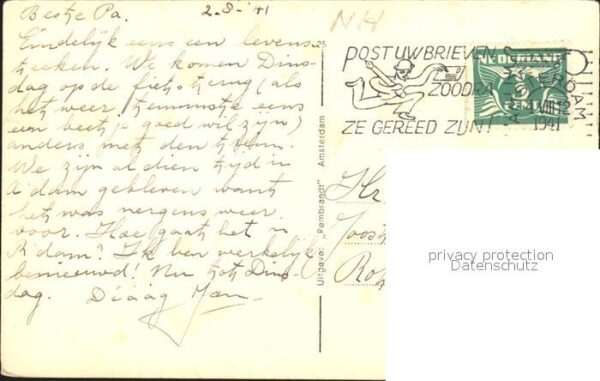 Beste Pa.
2-8-'41
NH
Eindelijk eens een levens-
teeken. We komen Dins-
dag op de fiets terug (als
het weer tenminste eens
een beetje goed wil zijn)
anders met den trein.
We zijn al dien tijd in
A'dam gebleven want
het was nergens weer
voor. Hoe gaat het in
R'dam? Ik ben werkelijk
benieuwd! Nu tot Dins-
dag. Dáág Jan
Uitgave: „Rembrandt" Amsterdam
POST UW BRIEVEN
ZOODRA
ZE GEREED ZIJN!
NEDERLAND
AMSTERDAM
VIII
1941
Joost
privacy protection
Datenschutz